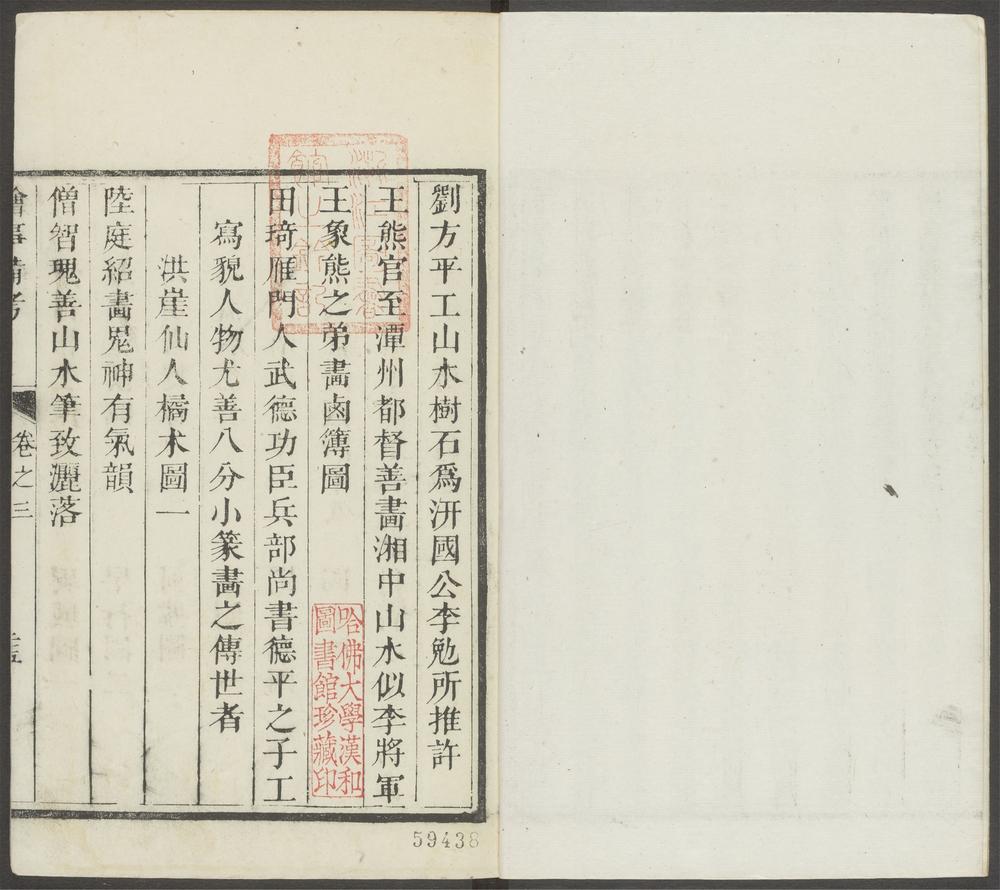 劉方平工山水樹石爲汧國公李勉所推許
王熊官至潭州都督善畫湘中山水似李將軍
王象熊之弟畫鹵簿圖
田琦雁門人武德功臣兵部尚書德平之子工
寫貌人物尤善八分小篆畫之傳世者
洪崖仙人橘术圖一
陸庭紹畫鬼神有氣韻
僧智瓌善山水筆致灑落
繪事備考
卷之三
哈佛大學漢和
圖書館珍藏印
59438